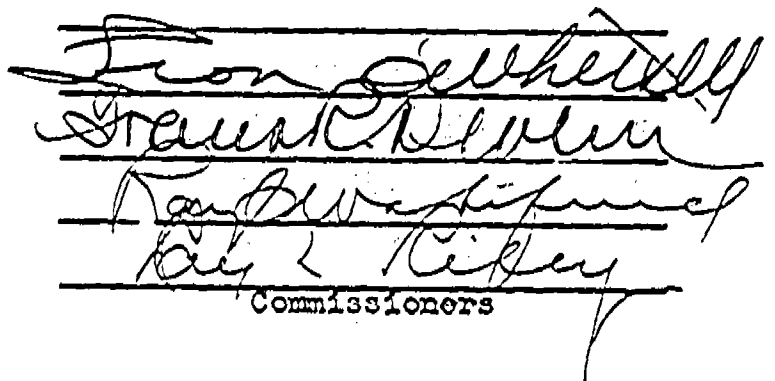 Leon O Whitsell
Frank R. Devlin
Ray C Wakefield
Ray L Riley
Commissioners